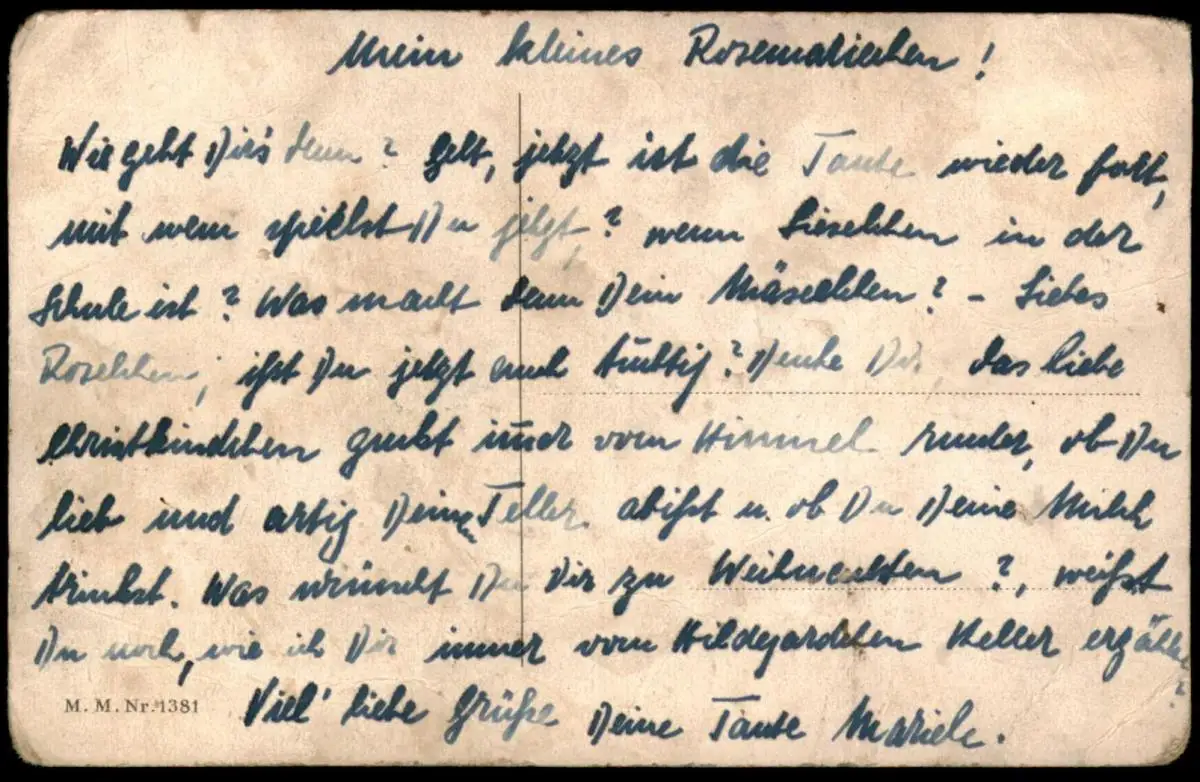 Mein kleines Rosemariechen!
Wie geht Dir's denn? Gelt, jetzt ist die Tante wieder fort,
mit wem spielst Du jetzt,? wenn Lieselchen in der
Schule ist? Was macht denn Dein Mäselchen? - Liebes
Roselchen, ißt Du jetzt auch tüchtig? Denke Dir, das liebe
Christkindchen guckt immer vom Himmel runter, ob Du
lieb und artig Deinen Teller abißt u. ob Du Deine Milch
trinkst. Was wünscht Du Dir zu Weihnachten?, weißt
Du noch, wie ich Dir immer vom Hildegardchen Keller erzählte?
Viel' liebe Grüße Deine Tante Mariele.
M. M. Nr. 1381